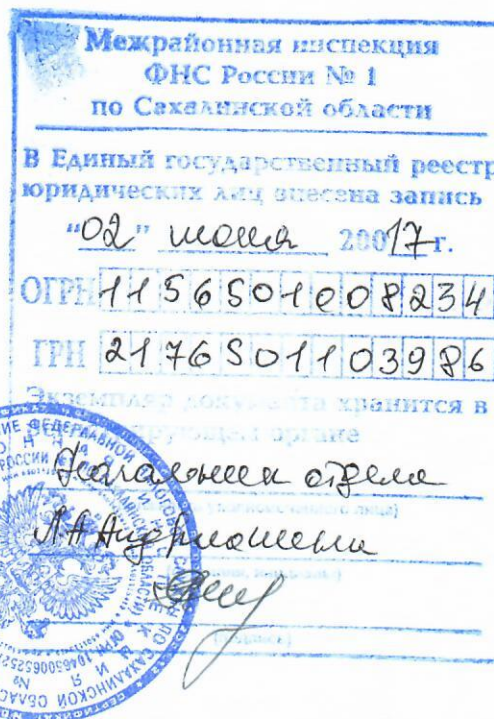 Межрайонная инспекция
ФНС России № 1
по Сахалинской области
В Единый государственный реестр
юридических лиц внесена запись
"02" июня 20017г.
ОГРН 1156501008234
ГРН 2176501103986
Экземпляр документа хранится в
регистрирующем органе
Начальник отдела